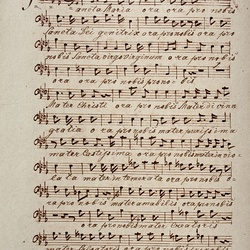 Sancta Maria ora ora pro nobis
Sancta Dei genitrix ora pro nobis ora pro
nobis Sancta virgo virginum ora ora pro
ora ora pro nobis pro nobis
Mater Christi ora pro nobis Mater divina
gratia ora pro nobis mater purissima
mater castissima ora pro nobis mater invio
lata mater intemerata ora pro nobis o
ra pro nobis mater amabilis ora pro nobis
ora pro nobis mater
mater